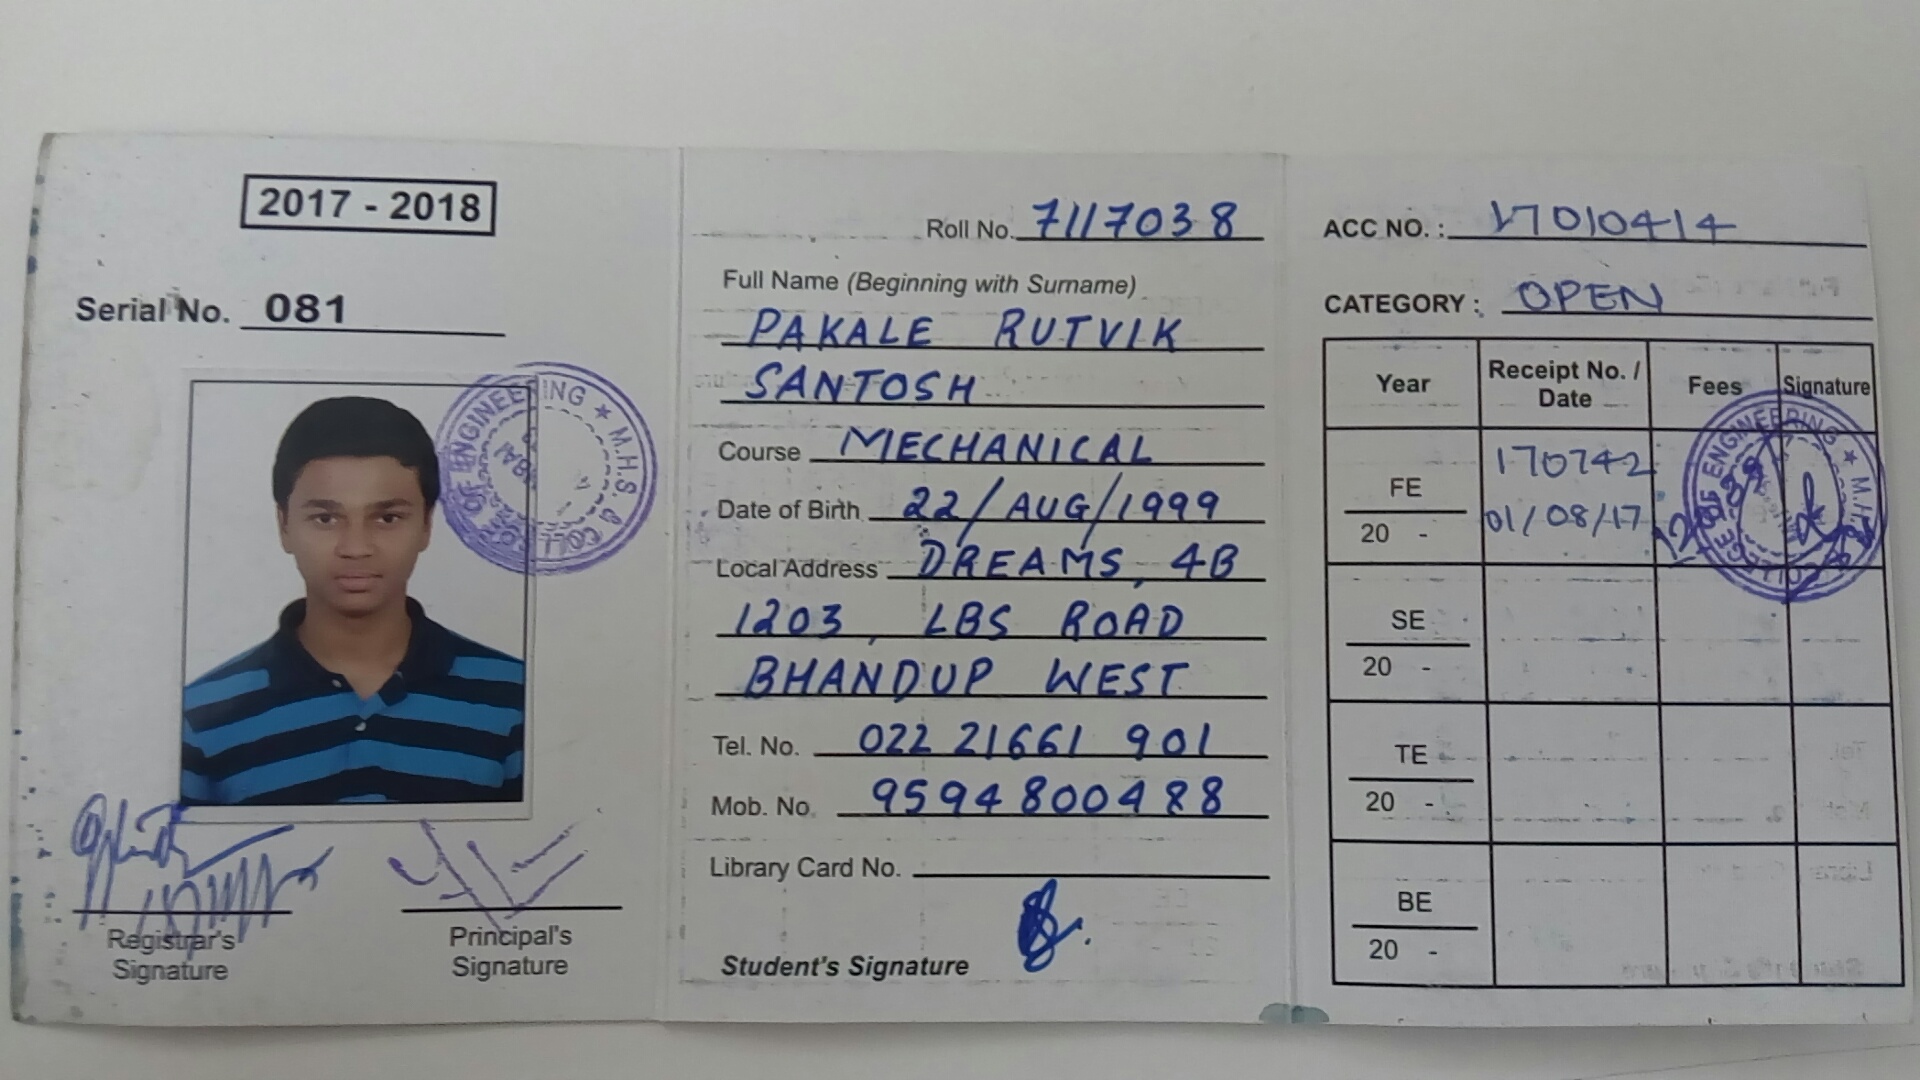 2017 - 2018
Serial No. 081
COLLEGE OF ENGINEERING ★ M.H.S.
Registrar's
Signature
Principal's
Signature
Roll No. 7117038
Full Name (Beginning with Surname)
PAKALE RUTVIK
SANTOSH
Course MECHANICAL
Date of Birth 22/AUG/1999
Local Address DREAMS, 4B
1203, LBS ROAD
BHANDUP WEST
Tel. No. 022 21661 901
Mob. No. 9594800488
Library Card No.
Student's Signature
ACC NO. : 17010414
CATEGORY : OPEN
Year Receipt No. / Date Fees Signature
FE 170742
20 - 01/08/17
COLLEGE OF ENGINEERING ★ M.H.
SE
20 -
TE
20 -
BE
20 -